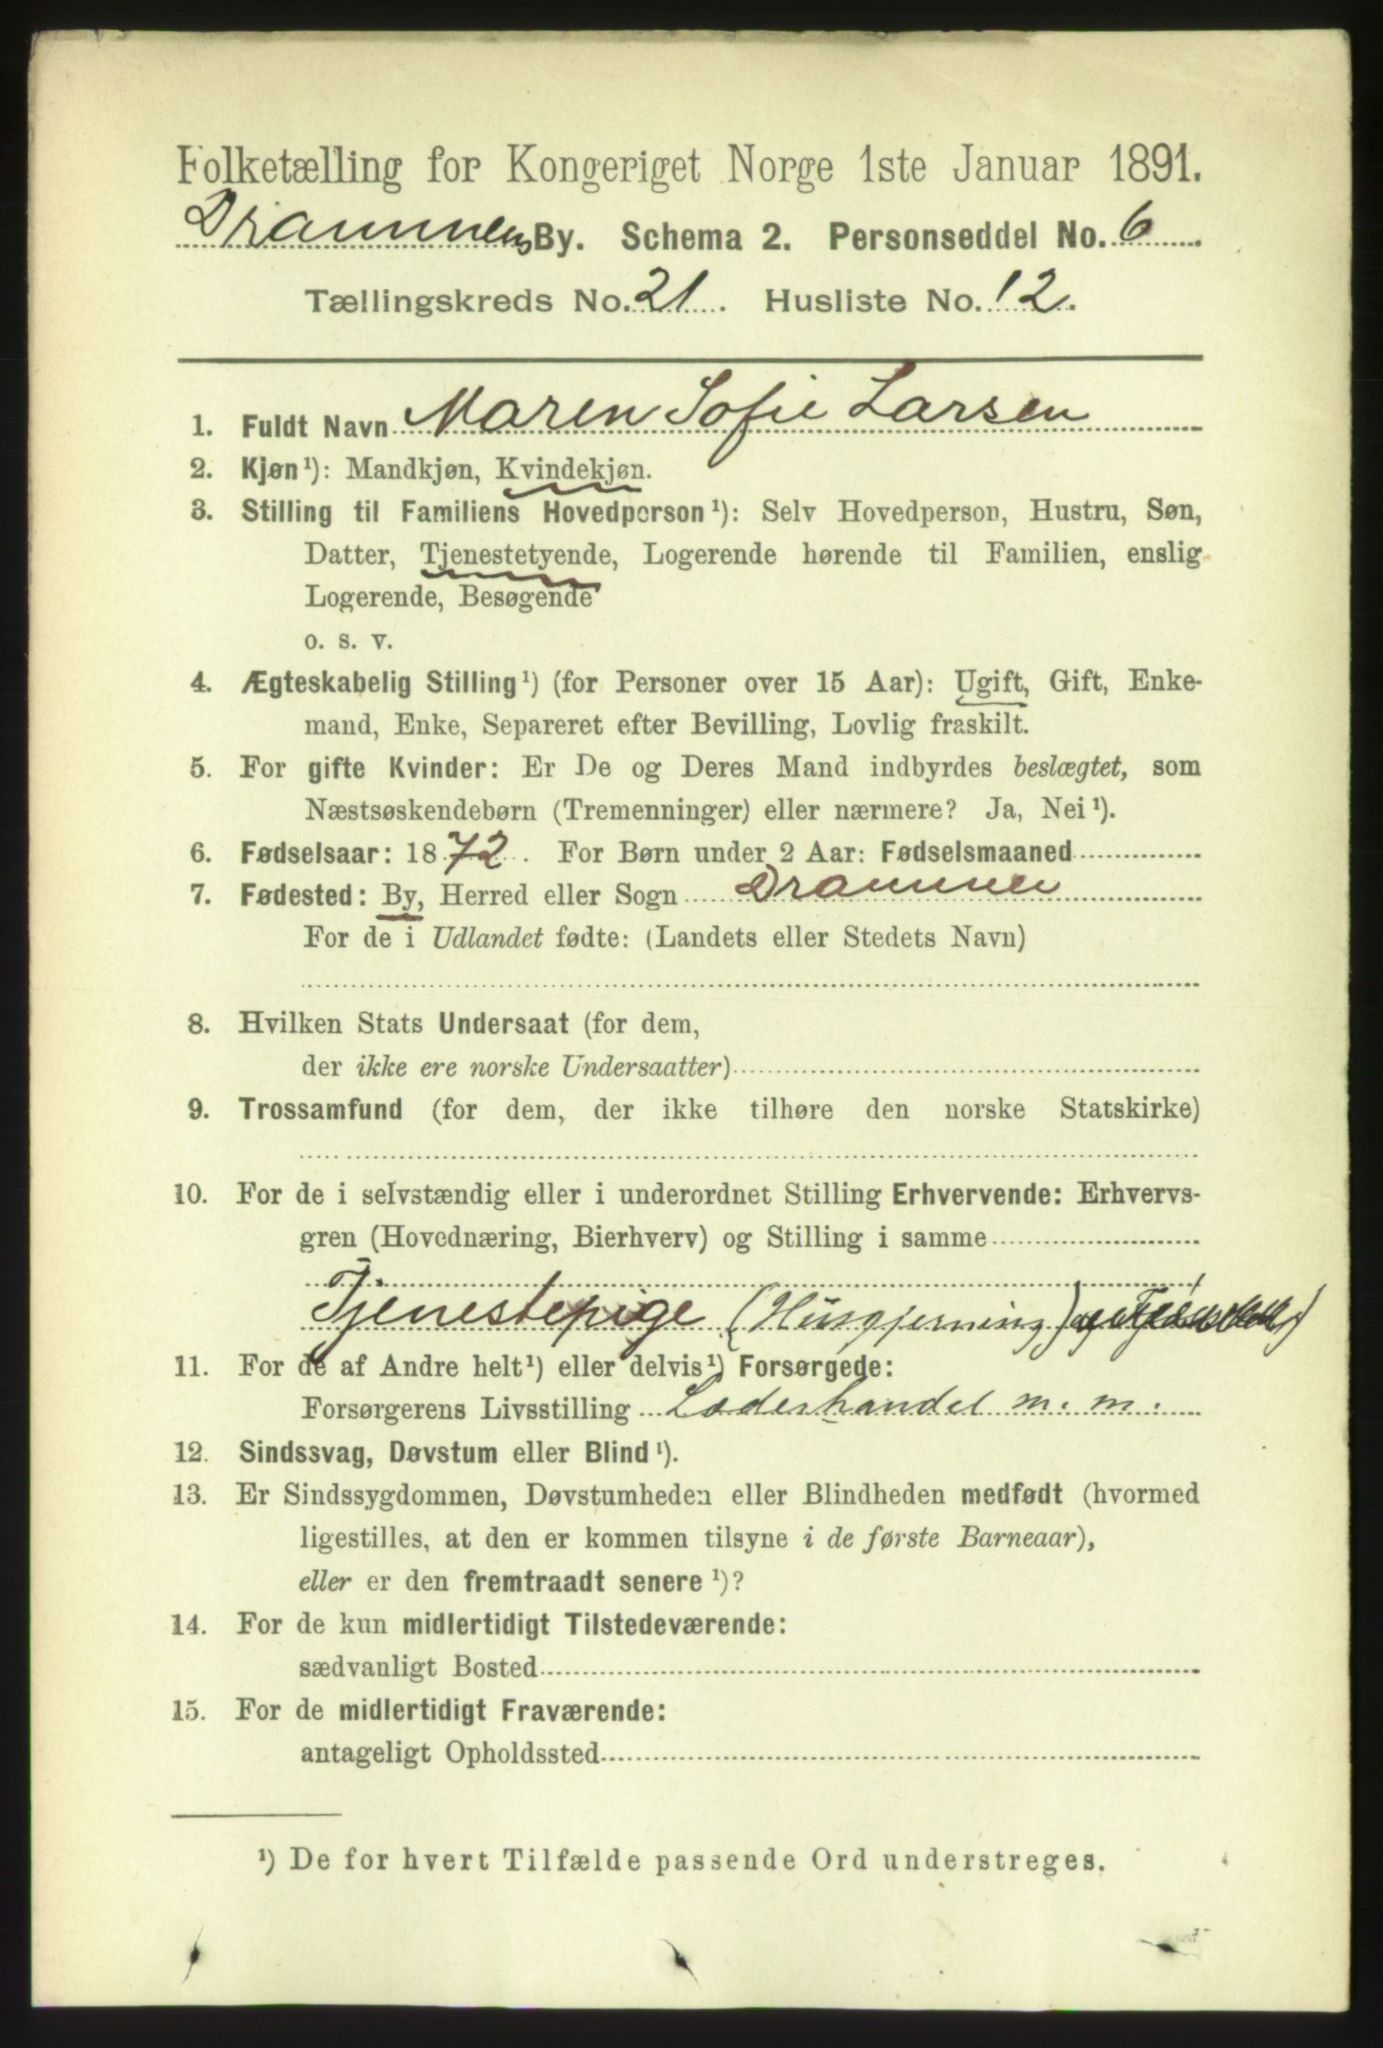 Folketælling for Kongeriget Norge 1ste Januar 1891.
Drammens By. Schema 2. Personseddel No. 6
Tællingskreds No. 21. Husliste No. 12.
1. Fuldt Navn Maren Sofie Larsen
2. Kjøn¹): Mandkjøn, Kvindekjøn.
3. Stilling til Familiens Hovedperson¹): Selv Hovedperson, Hustru, Søn,
Datter, Tjenestetyende, Logerende hørende til Familien, enslig
Logerende, Besøgende
o. s. v.
4. Ægteskabelig Stilling¹) (for Personer over 15 Aar): Ugift, Gift, Enke-
mand, Enke, Separeret efter Bevilling, Lovlig fraskilt.
5. For gifte Kvinder: Er De og Deres Mand indbyrdes beslægtet, som
Næstsøskendebørn (Tremenninger) eller nærmere? Ja, Nei¹).
6. Fødselsaar: 1872. For Børn under 2 Aar: Fødselsmaaned
7. Fødested: By, Herred eller Sogn Drammen
For de i Udlandet fødte: (Landets eller Stedets Navn)
8. Hvilken Stats Undersaat (for dem,
der ikke ere norske Undersaatter)
9. Trossamfund (for dem, der ikke tilhøre den norske Statskirke)
10. For de i selvstændig eller i underordnet Stilling Erhvervende: Erhvervs-
gren (Hovednæring, Bierhverv) og Stilling i samme
Tjenestepige (Husgjerning)
11. For de af Andre helt¹) eller delvis¹) Forsørgede:
Forsørgerens Livsstilling Læderhandel m. m.
12. Sindssvag, Døvstum eller Blind¹).
13. Er Sindssygdommen, Døvstumheden eller Blindheden medfødt (hvormed
ligestilles, at den er kommen tilsyne i de første Barneaar),
eller er den fremtraadt senere¹)?
14. For de kun midlertidigt Tilstedeværende:
sædvanligt Bosted
15. For de midlertidigt Fraværende:
antageligt Opholdssted
¹) De for hvert Tilfælde passende Ord understreges.